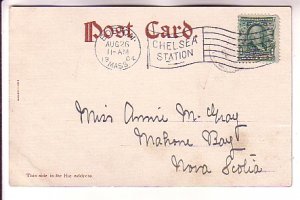 Post Card.
AUG 26
11-AM
MASS.
CHELSEA
STATION
Miss Annie M. Gray
Mahone Bay
Nova Scotia
This side is for the address.